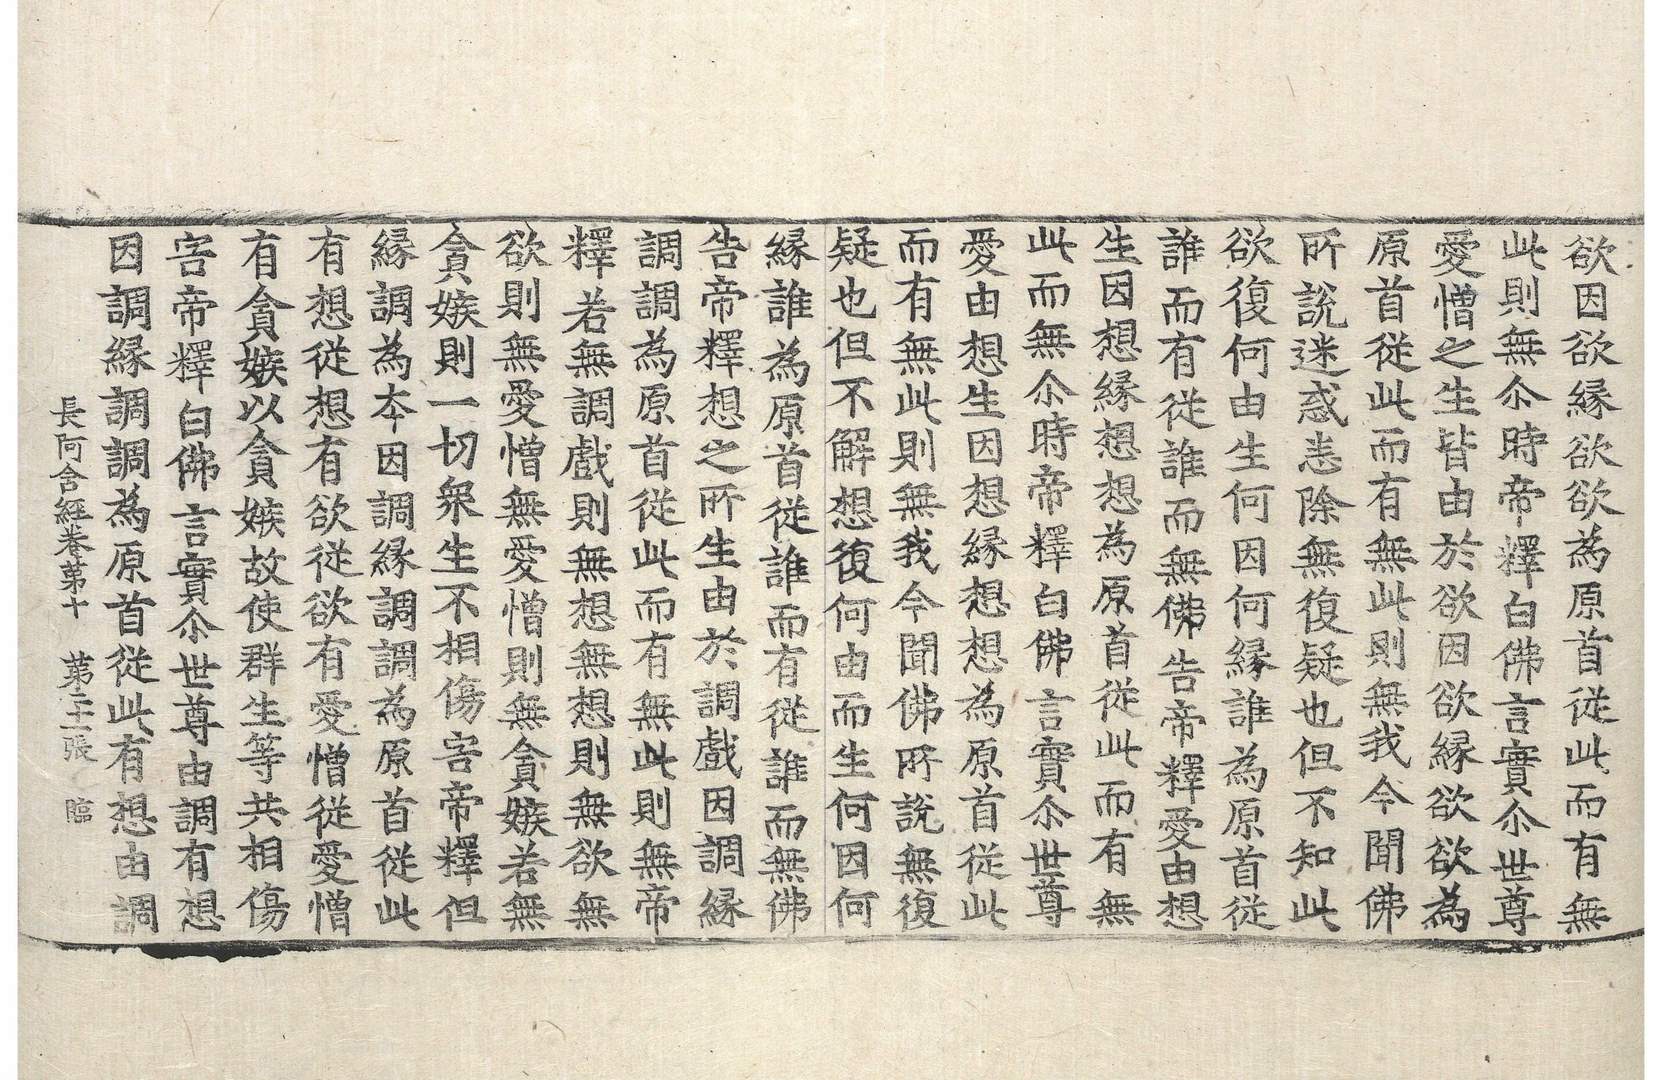 欲因欲縁欲欲為原首從此而有無
此則無尒時帝釋白佛言實尒世尊
愛憎之生皆由於欲因欲縁欲欲為
原首從此而有無此則無我今聞佛
所說迷惑悉除無復疑也但不知此
欲復何由生何因何縁誰為原首從
誰而有從誰而無佛告帝釋愛由想
生因想縁想想為原首從此而有無
此而無尒時帝釋白佛言實尒世尊
愛由想生因想縁想想為原首從此
而有無此則無我今聞佛所說無復
疑也但不解想復何由而生何因何
縁誰為原首從誰而有從誰而無佛
告帝釋想之所生由於調戲因調縁
調調為原首從此而有無此則無帝
釋若無調戲則無想無想則無欲無
欲則無愛憎無愛憎則無貪嫉若無
貪嫉則一切衆生不相傷害帝釋但
縁調為夲因調縁調調為原首從此
有想從想有欲從欲有愛憎從愛憎
有貪嫉以貪嫉故使群生等共相傷
害帝釋白佛言實尒世尊由調有想
因調縁調調為原首從此有想由調
長阿含經卷第十 第二十一張 臨